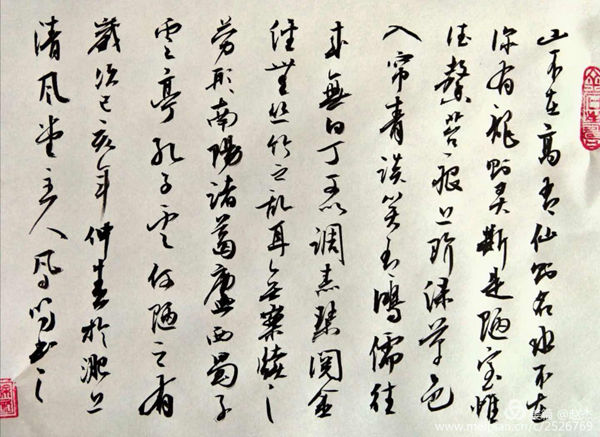 山不在高有仙则名水不在
深有龍则灵斯是陋室惟
德馨苔痕上阶绿草色
入帘青谈笑有鸿儒往
来無白丁可以调素琴阅金
经無丝竹之乱耳無案牍之
劳形南陽诸葛廬西蜀子
云亭孔子云何陋之有
歲次己亥年仲春於淝上
清风堂主人书之
美篇 @赵杰
www.meipian.cn/c/2526769